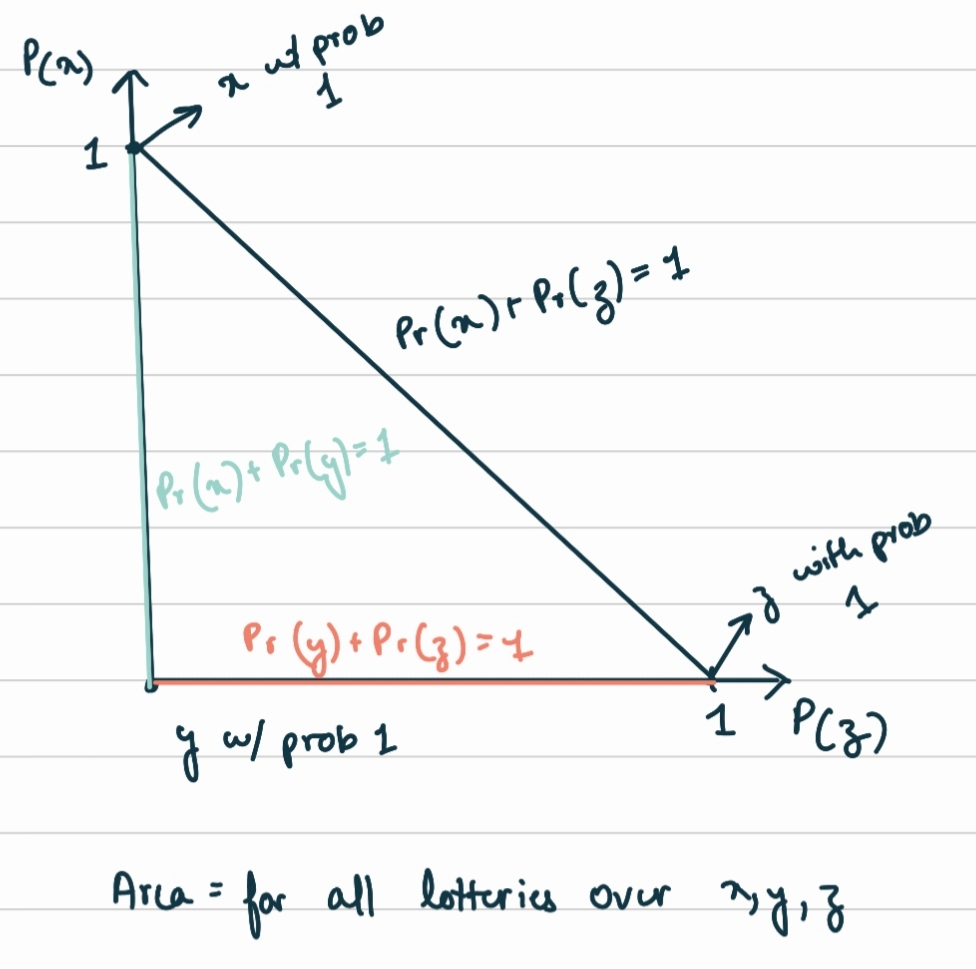 P(x)
x w/ prob
1
1
Pr(x) + Pr(z) = 1
Pr(x) + Pr(y) = 1
z with prob
1
Pr(y) + Pr(z) = 1
1
P(z)
y w/ prob 1
Area = for all lotteries over x, y, z